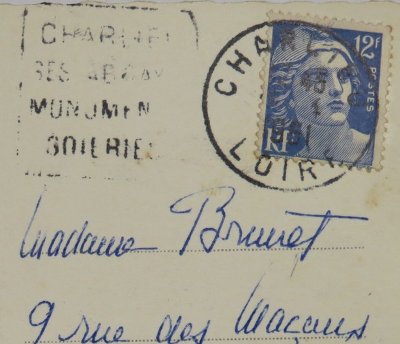 CHARLIEU
SES ABBAY
MONUMEN
SOIERIE
CHARLIEU
LOIRE
1951
12F
POSTES
RF
Madame Brunet
9 rue des Maçons